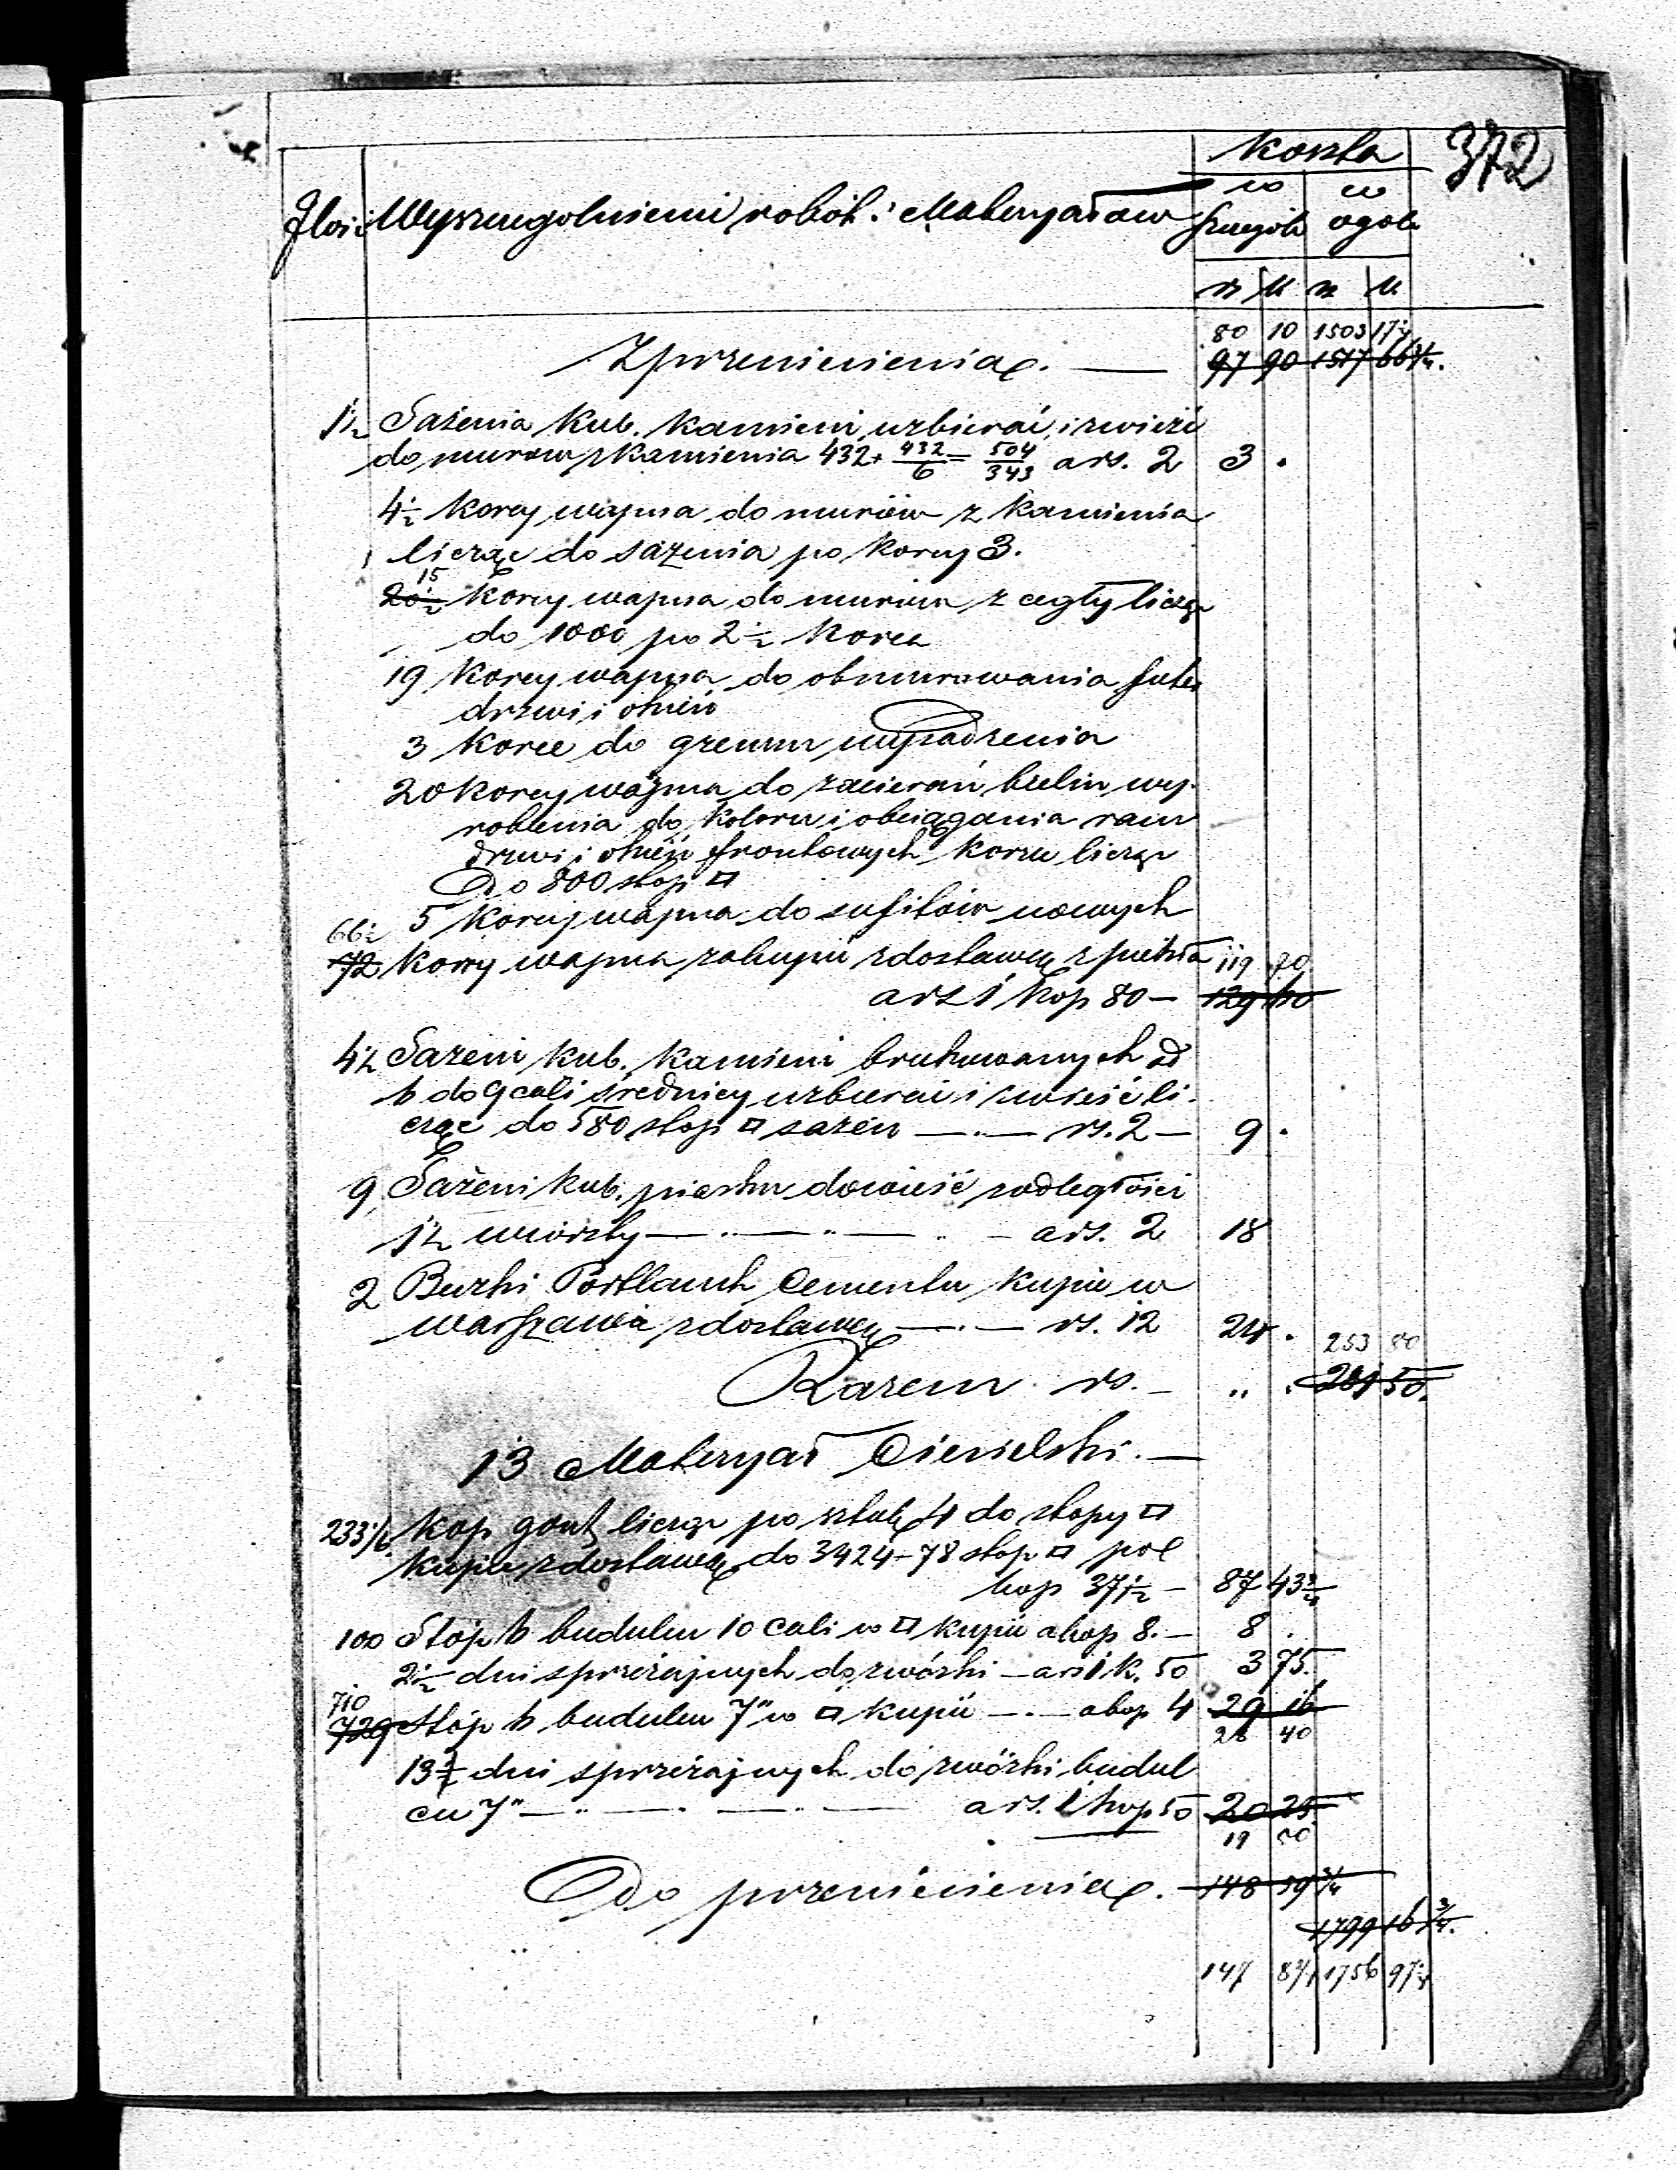 372
Koszta
Ilość Wyszczegolnienie robót i Materyałów
w szczególe w ogóle
rs k rs k
80 10 1503 17 1/4
Z przeniesienia. — 97 90 1517 66 1/4.
1 1/2 Sążenia kub. kamieni uzbierać i zwieźć
do murów z kamienia 432 + 432/6 = 504/343 a rs. 2 3 .
4 1/2 korcy wapna do murów z kamienia
licząc do sążenia po korcy 3.
15
20 1/2 korcy wapna do murów z cegły licząc
do 1000 po 2 1/2 korca
19 korcy wapna do obmurowania futer
drzwi i okien
3 korce do gzemsu
20 korcy wapna do zacierań wy-
robienia do koloru i obciągania ram
drzwi i okien frontowych korzec licząc
Do 800 stop □
5 korcy wapna do sufitów nowych
66 1/2
72 korcy wapna zakupić z dostawą 119 70
a rs 1 kop 80 — 129 60
4 1/2 Sążeni kub. kamieni brukowanych od
6 do 9 cali średnicy uzbierać i zwieść li-
cząc do 580 stop □ sążeń — " — rs. 2 — 9 .
9 Sążeni kub. piasku dowieść z odległości
1 1/2 wiorsty — " — " — a rs. 2 18
2 Beczki Portlandz Cementu kupić w
Warszawie z dostawą — " — rs. 12 24 .
253 80
Razem rs. — " . 281 50.
13 Materyał Ciesielski. —
233 1/6 Kop gont licząc po sztuk 4 do stopy □
kupić z dostawą do 3424 + 78 stop □ po
kop 37 1/2 — 87 43 3/4
100 Stóp b budulcu 10 cali w □ kupić a kop 8. — 8 .
2 1/2 dni sprzężajnych do zwózki — a rs 1 k. 50 3 75.
710
729 Stóp b budulcu 7" w □ kupić — " — a kop 4 29 16
28 40
13 1/2 dni sprzężajnych do zwózki budul
cu 7" — " — " — a rs. 1 kop 50 20 25
19 80
Do przeniesienia. — 148 59 3/4
1799 16 3/4.
147 1756 97 1/4